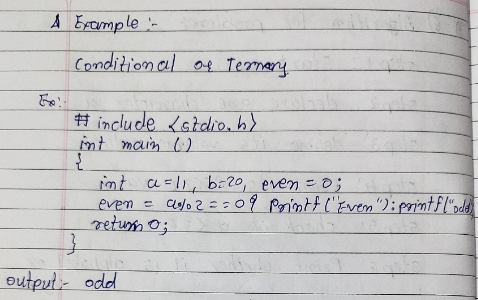 A Example :-
Conditional or Ternary
Ex:-
# include <stdio.h>
int main ()
{
int a=11, b=20, even = 0;
even = a%2 == 0? Printf ("Even"): printf("odd
return 0;
}
output:- odd